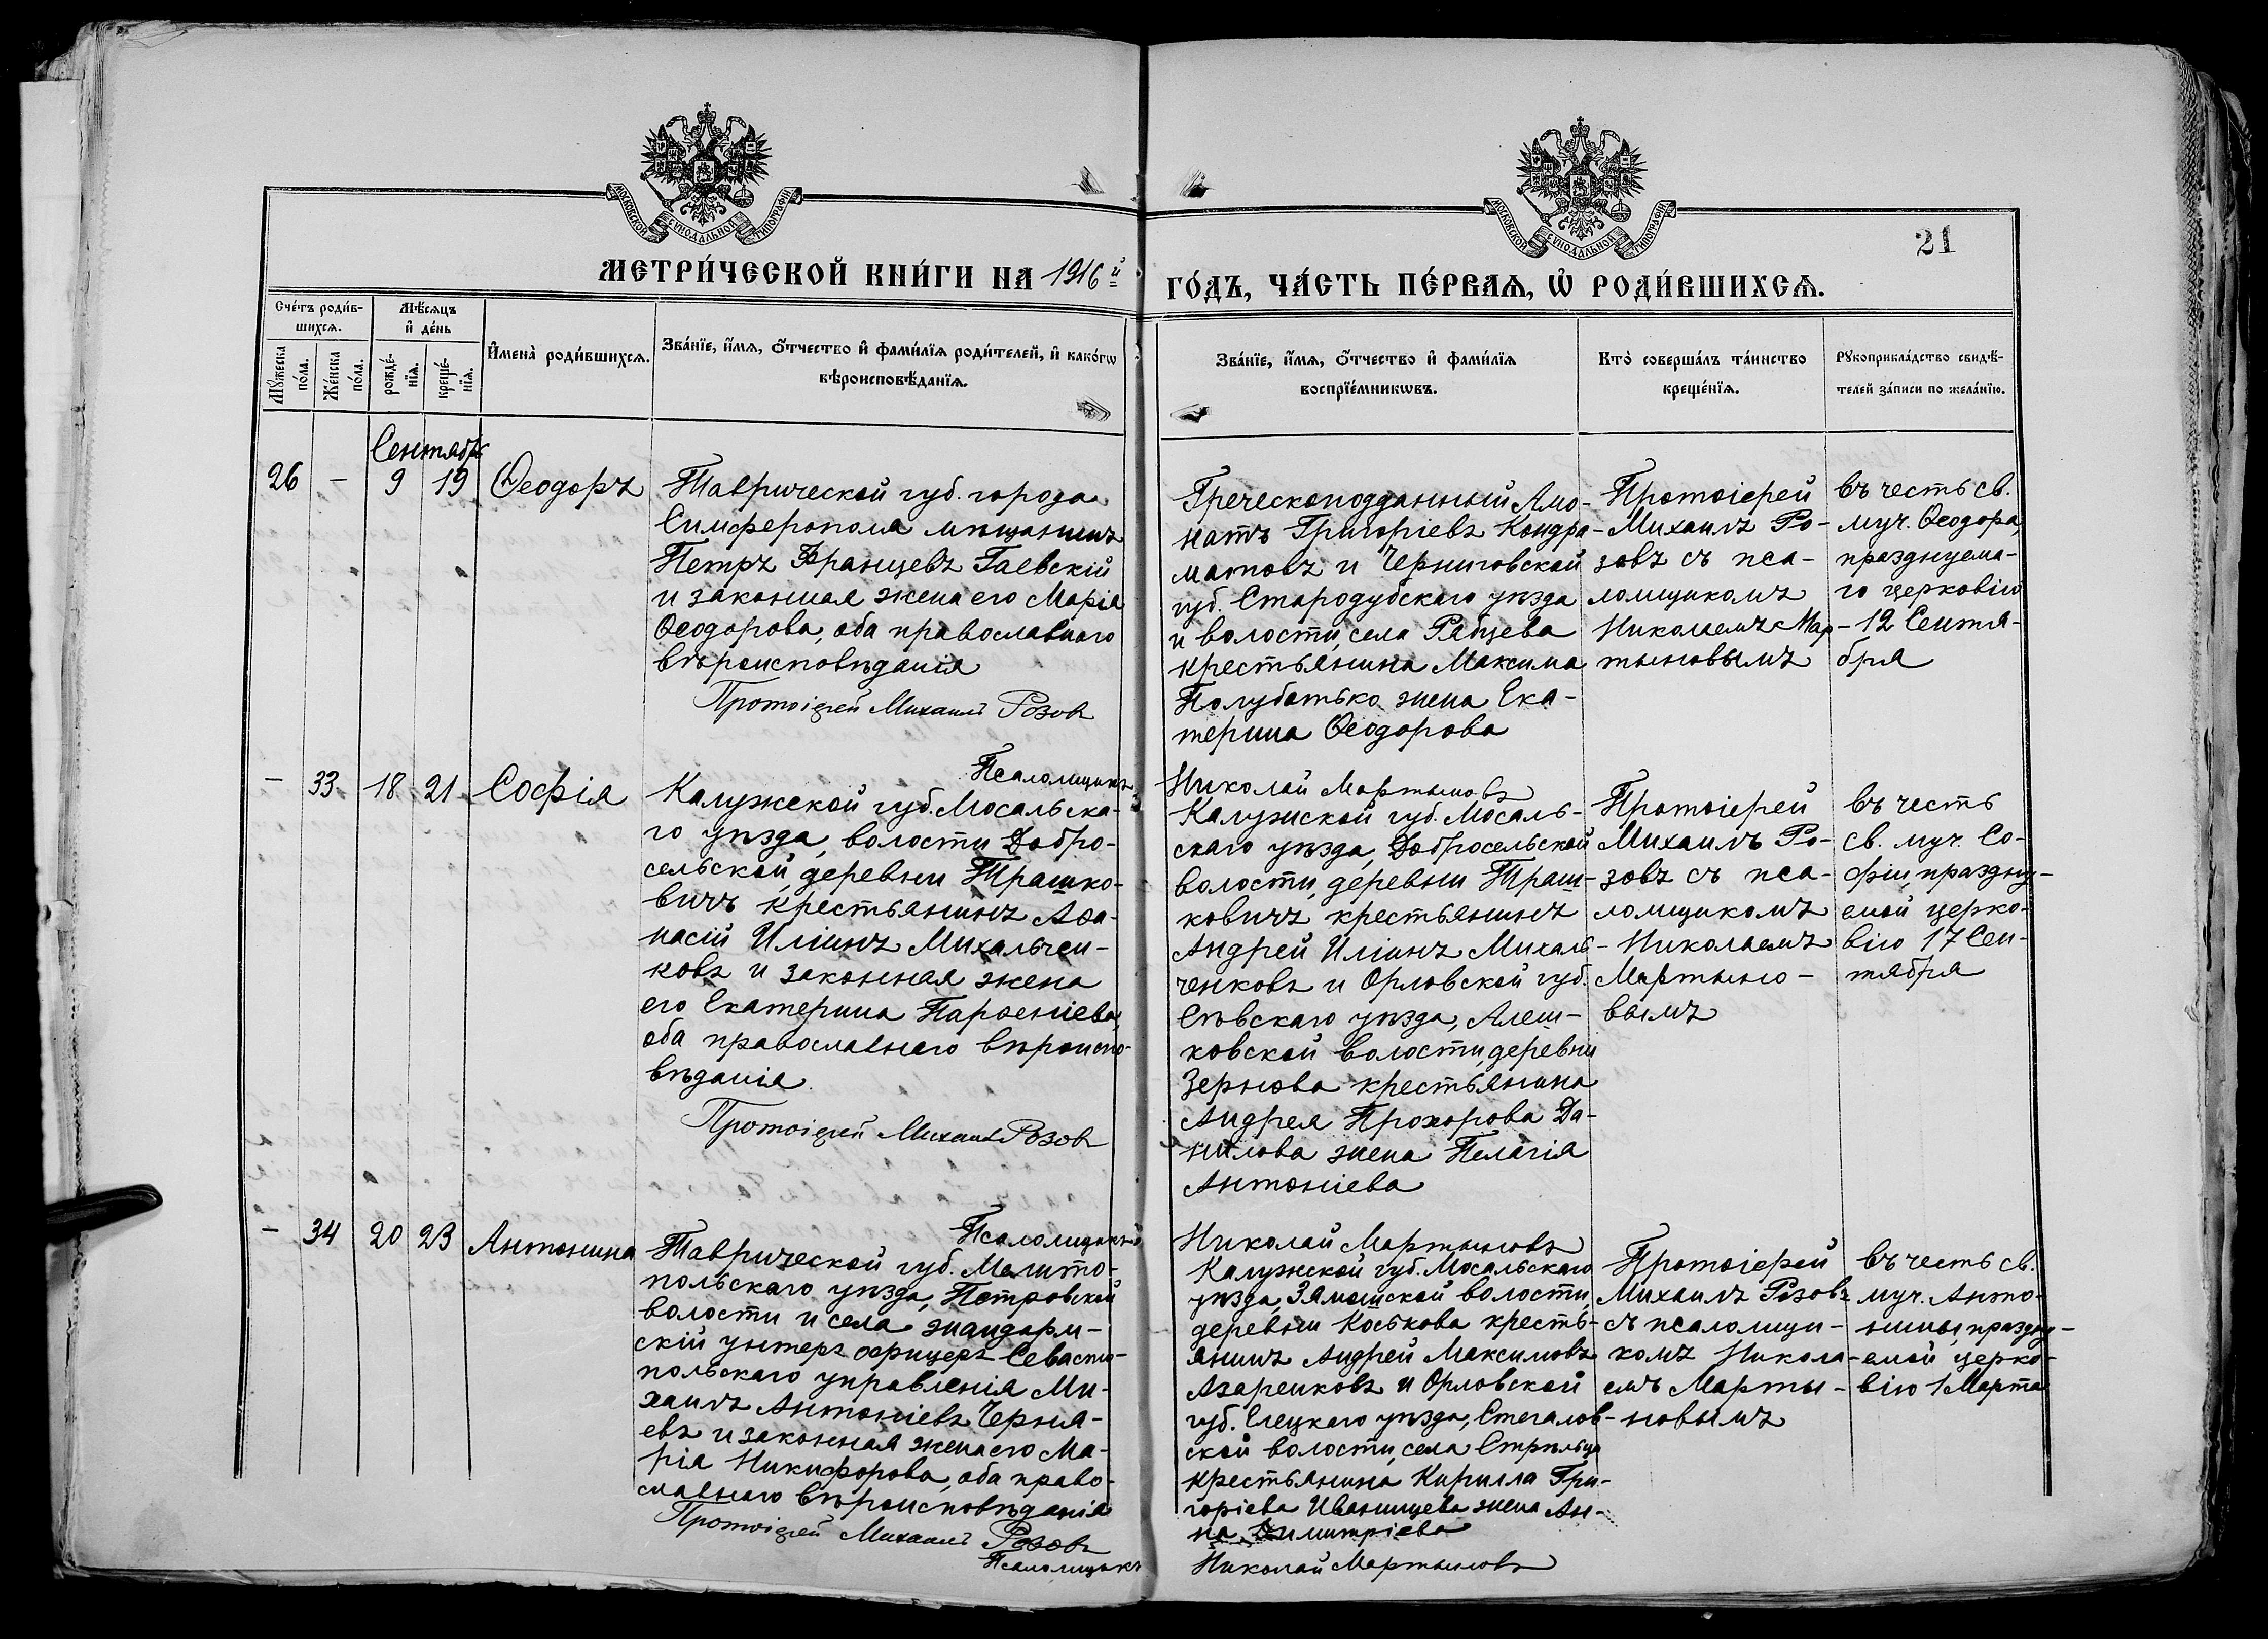 МОСКОВСКОЙ СѴНОДАЛЬНОЙ ТИПОГРАФІИ
МОСКОВСКОЙ СѴНОДАЛЬНОЙ ТИПОГРАФІИ
21
МЕТРИ́ЧЕСКОЙ КНИ́ГИ НА 1916й
ГО́ДЪ, ЧА́СТЬ ПЕ́РВАѦ, Ѡ҆ РОДИ́ВШИХСѦ.
Сче́тъ роди́в-
шихсѧ.
Мѣ́сѧцъ
и҆ де́нь
Мꙋ́жеска
по́ла.
Же́нска
по́ла.
рожде́-
нїѧ.
креще́-
нїѧ.
И҆мена̀ роди́вшихсѧ.
Зва́нїе, и҆́мѧ, ѻ҆́тчество и҆ фами́лїѧ роди́телей, и҆ како́гѡ
вѣроисповѣ́данїѧ.
Зва́нїе, и҆́мѧ, ѻ҆́тчество и҆ фами́лїѧ
воспрїе́мникѡвъ.
Кто̀ соверша́лъ та́инство
креще́нїѧ.
Рꙋкоприкла́дство свидѣ́-
телей за́писи по жела́нїю.
Сентябрь
26 - 9 19 Ѳеодоръ
Таврической губ. города
Симферополя мѣщанинъ
Петръ Францевъ Гаевскій
и законная жена его Марія
Ѳеодорова, оба православнаго
вѣроисповѣданія
Протоіерей Михаилъ Розовъ
Псаломщикъ
Греческоподданный Ано-
натъ Григоріевъ Кондра-
матовъ и Черниговской
губ. Стародубскаго уѣзда
и волости, села Рябцева
крестьянина Максима
Полубатько жена Ека-
терина Ѳеодорова
Николай Мартыновъ
Протоіерей
Михаилъ Ро-
зовъ съ пса-
ломщикомъ
Николаемъ Мар-
тыновымъ
въ честь св.
муч. Ѳеодора,
празднуема-
го церковію
12 Сентя-
бря
- 33 18 21 Софія
Калужской губ. Мосальска-
го уѣзда, волости Добро-
сельской, деревни Трашко-
вичъ крестьянинъ Аѳа-
насій Иліинъ Михальчен-
ковъ и законная жена
его Екатерина Парѳеніева,
оба православнаго вѣроиспо-
вѣданія.
Протоіерей Михаилъ Розовъ
Псаломщикъ
Калужской губ. Мосаль-
скаго уѣзда, Добросельской
волости, деревни Траш-
ковичъ крестьянинъ
Андрей Иліинъ Михаль-
ченковъ и Орловской губ.
Сѣвскаго уѣзда, Алеш-
ковской волости, деревни
Зернова крестьянина
Андрея Прохорова Да-
нилова жена Пелагія
Антоніева
Николай Мартыновъ
Протоіерей
Михаилъ Ро-
зовъ съ пса-
ломщикомъ
Николаемъ
Мартыно-
вымъ
въ честь
св. муч. Со-
фіи, праздну-
емой церко-
вію 17 Сен-
тября
- 34 20 23 Антонина
Таврической губ. Мелито-
польскаго уѣзда, Петровской
волости и села жандарм-
скій унтеръ офицеръ Севасто-
польскаго управленія Ми-
хаилъ Антоніевъ Черня-
евъ и законная жена его Ма-
рія Никифорова, оба право-
славнаго вѣроисповѣданія
Протоіерей Михаилъ Розовъ
Псаломщикъ
Калужской губ. Мосальскаго
уѣзда, Замошской волости,
деревни Коськова кресть-
янинъ Андрей Максимовъ
Азаренковъ и Орловской
губ. Елецкаго уѣзда, Стегалов-
ской волости, села Стрѣльца
крестьянина Кирилла Гри-
горіева Иванищева жена Ан-
на Димитріева
Николай Мартыновъ
Протоіерей
Михаилъ Розовъ
съ псаломщи-
комъ Никола-
емъ Марты-
новымъ
въ честь св.
муч. Анто-
нины, праздну-
емой церко-
вію 1 Марта